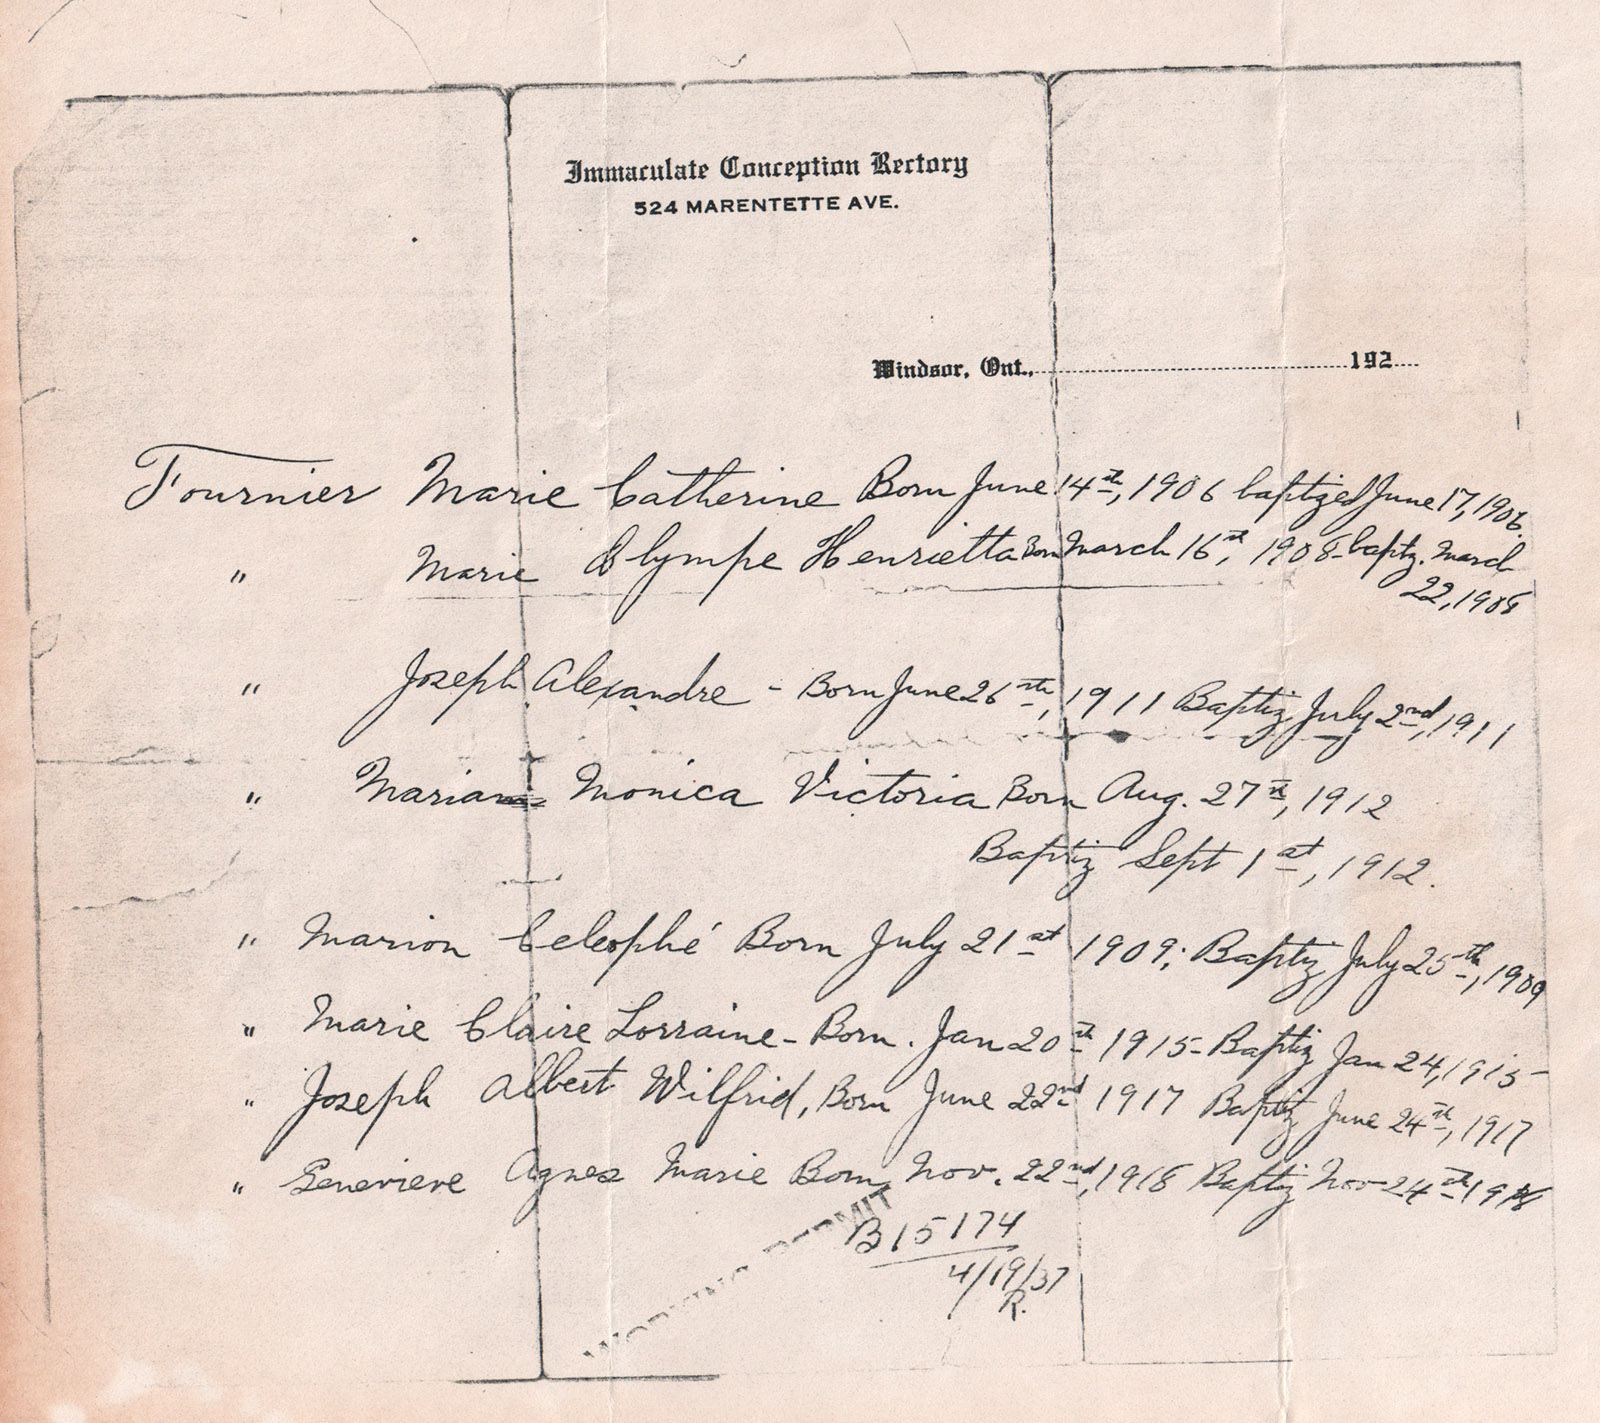 Immaculate Conception Rectory
524 MARENTETTE AVE.
Windsor, Ont., 192
Fournier Marie Catherine Born June 14th, 1906 baptized June 17, 1906.
" Marie Olympe Henrietta Born March 16th, 1908 - baptz. March
22, 1908
" Joseph Alexandre - Born June 26th, 1911 Baptiz July 2nd, 1911
" Marian Monica Victoria Born Aug. 27th, 1912
Baptiz Sept 1st, 1912.
" Marion Celeophé Born July 21st 1909; Baptiz July 25th, 1909
" Marie Claire Lorraine - Born. Jan 20th 1915 - Baptiz Jan 24, 1915
" Joseph Albert Wilfrid, Born June 22nd 1917 Baptiz June 24th, 1917
" Genevieve Agnes Marie Born Nov. 22nd, 1918 Baptiz Nov 24th 1918
WORKING PERMIT
B15174
4/19/37
R.